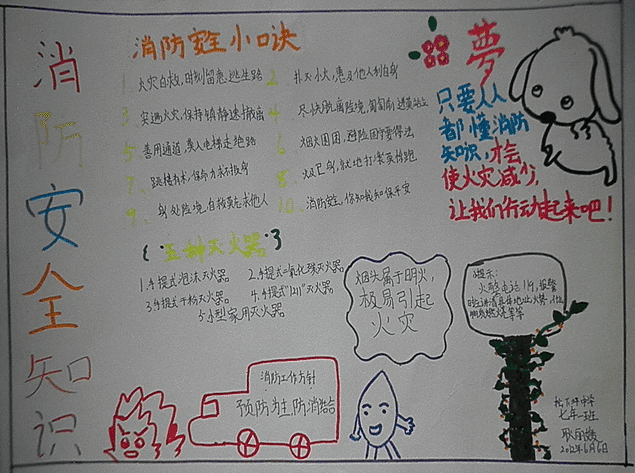 消防安全知识
消防安全小口诀
1. 火灾自救,时刻留意,逃生路
2. 扑灭小火,惠及他人利自身
3. 突遇火灾,保持镇静速撤离
4. 尽快脱离险境,
5. 善用通道,莫入电梯走绝路
6. 烟火围困,避险固守要得法
7. 跳楼有术,保命力求
8. 火及己身,就地打滚莫惊跑
9. 身处险境,自救莫忘求他人
10. 消防安全,你知我知保平安
五种灭火器
1.手提式泡沫灭火器
2.手提式二氧化碳灭火器
3.手提式干粉灭火器
4.手提式1211灭火器
5.小型家用灭火器
夢
只要人人
都懂消防
知识,才会
使火灾减少,
让我们行动起来吧!
烟头属于明火,
极易引起
火灾
提示:
火警电话119,报警
时讲清具体地址火势,
燃烧等等
消防工作方针
预防为主防消结合
中学
七年一班
2012年6月6日